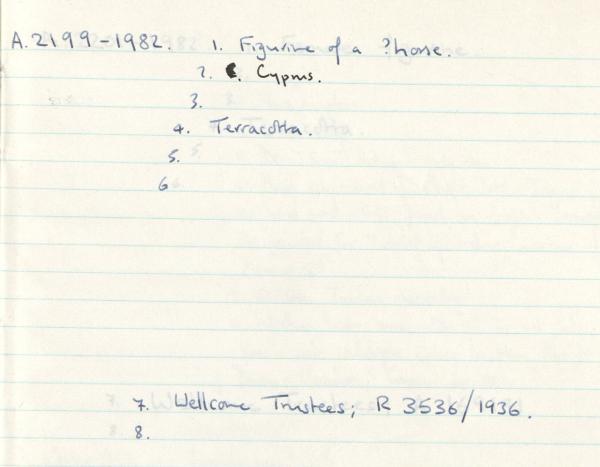 A.2199-1982. 1. Figurine of a ?horse.
2. C. Cyprus.
3.
4. Terracotta.
5.
6
7. Wellcome Trustees; R 3536/1936.
8.